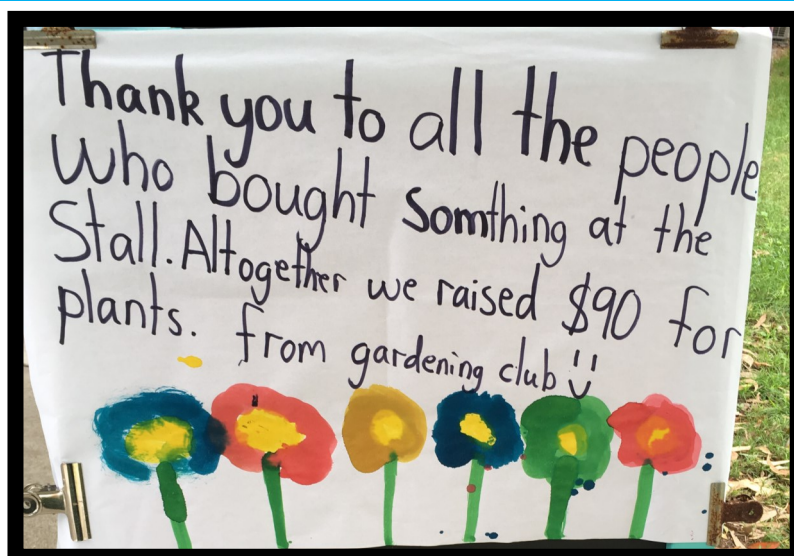 Thank you to all the people
who bought somthing at the
Stall. Altogether we raised $90 for
plants. from gardening club